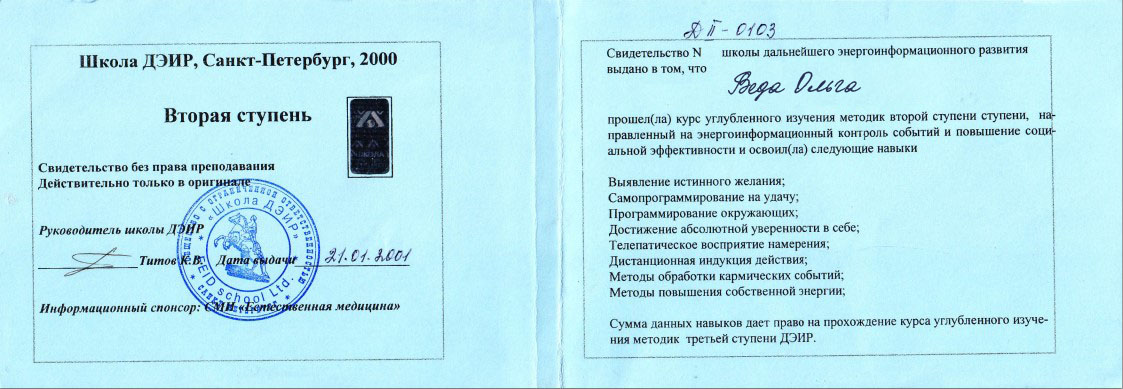 Школа ДЭИР, Санкт-Петербург, 2000
Вторая ступень
Свидетельство без права преподавания
Действительно только в оригинале
Руководитель школы ДЭИР
Титов К.В. Дата выдачи 21.01.2001
Информационный спонсор: СМИ «Естественная медицина»
ОБЩЕСТВО С ОГРАНИЧЕННОЙ ОТВЕТСТВЕННОСТЬЮ
«Школа ДЭИР»
FEID school Ltd.
Д II - 0103
Свидетельство N школы дальнейшего энергоинформационного развития
выдано в том, что
Веда Ольга
прошел(ла) курс углубленного изучения методик второй ступени ступени, на-
правленный на энергоинформационный контроль событий и повышение соци-
альной эффективности и освоил(ла) следующие навыки
Выявление истинного желания;
Самопрограммирование на удачу;
Программирование окружающих;
Достижение абсолютной уверенности в себе;
Телепатическое восприятие намерения;
Дистанционная индукция действия;
Методы обработки кармических событий;
Методы повышения собственной энергии;
Сумма данных навыков дает право на прохождение курса углубленного изуче-
ния методик третьей ступени ДЭИР.